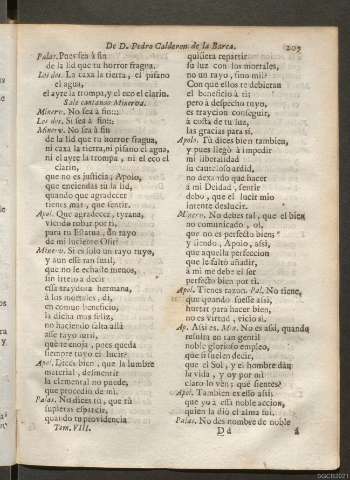 De D. Pedro Calderon de la Barca. 209
Palas. Pues sea à fin
de la lid que tu horror fragua.
Los dos. La caxa la tierra, el pifano
el agua,
el ayre la trompa, y el eco el clarin.
Sale cantando Minerva.
Minerv. No sea à fin:::
Los dos. Si sea à fin:::
Minerv. No sea à fin
de la lid que tu horror fragua,
ni caxa la tierra, ni pifano el agua,
ni el ayre la trompa, ni el eco el
clarin,
que no es justicia, Apolo,
que enciendas su la lid,
quando que agradecer
tienes mas, que sentir.
Apol. Que agradecer, tyrana,
viendo robar por ti,
para tu Estatua, un rayo
de mi luciente Ofir?
Minerv. Si es solo un rayo tuyo,
y aun esse tan sutil,
que no le echaste menos,
sin serte o decir
essa traydora hermana,
à los mortales, di,
en comun beneficio,
la dicha mas feliz,
no haciendo falta allà
esse rayo sutil,
què te enoja, pues queda
siempre tuyo el lucir?
Apol. Dices bien, que la lumbre
material, desmentir
la elemental no puede,
que procediò de mi.
Palas. No dices tu, que tù
supieras esparcir,
quando tu providencia
Tom. VIII.
quisiera repartir
su luz con los mortales,
no un rayo, sino mil?
Con que ellos te debieran
el beneficio à ti;
pero à despecho tuyo,
es traycion conseguir,
à costa de tu luz,
las gracias para si.
Apolo. Tù dices bien tambien,
y pues llegò à impedir
mi liberalidad
su cauteloso ardid,
no dexando que hacer
à mi Deidad, sentir
debo, que el lucir mio
intente deslucir.
Minerv. No debes tal, que el bien
no comunicado, oì,
que no es perfecto bien;
y siendo, Apolo, assi,
que aquella perfeccion
que le faltò añadir,
à mi me debe el ser
perfecto bien por ti.
Apol. Tienes razon. Pal. No tiene,
que quando fuesse assi,
hurtar para hacer bien,
no es virtud, vicio si.
Ap. Assi es. Min. No es assi, quando
resulta en tan gentil
noble glorioso empleo,
que si suelen decir,
que el Sol, y el hombre dàn
la vida, y oy por mi
claro lo ven; què sientes?
Apol. Tambien es esso assi,
que yo à essa noble accion,
quien la diò el alma fui.
Palas. No des nombre de noble
Dd à
SGCB2021